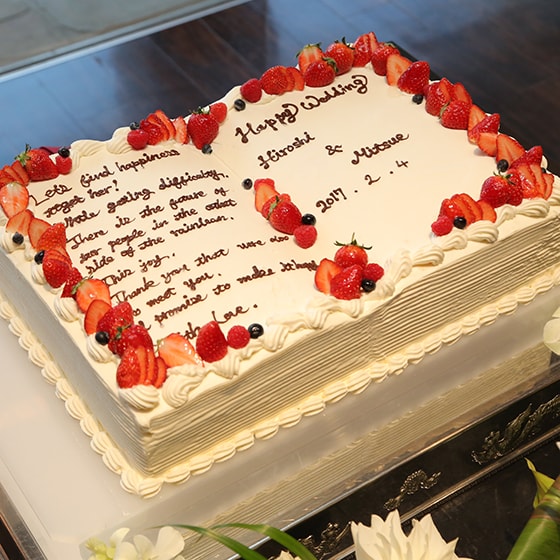 Let's find happiness
together!
While getting difficulty,
There is the future of
our people in the other
side of the rainbow.
This joy.
Thank you that were able
to meet you.
promise to make it happy
with Love.
Happy Wedding
Hiroshi & Mitsue
2017. 2. 4